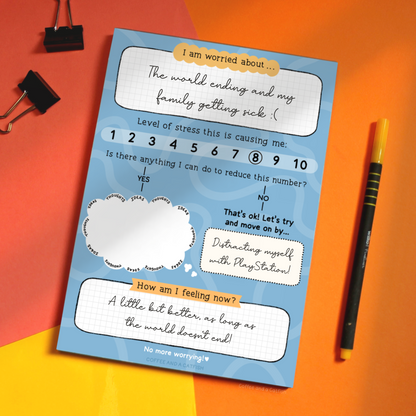 I am worried about...
The world ending and my
family getting sick :(
Level of stress this is causing me:
1 2 3 4 5 6 7 8 9 10
Is there anything I can do to reduce this number?
YES
NO
That's ok! Let's try
and move on by...
Distracting myself
with PlayStation!
How am I feeling now?
A little bit better, as long as
the world doesn't end!
No more worrying!♥